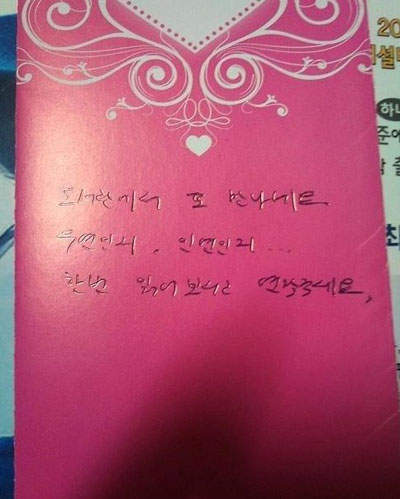 도서관에서 또 만나네요
우연인지, 인연인지...
한번 읽어보시고 연락주세요,
20
최